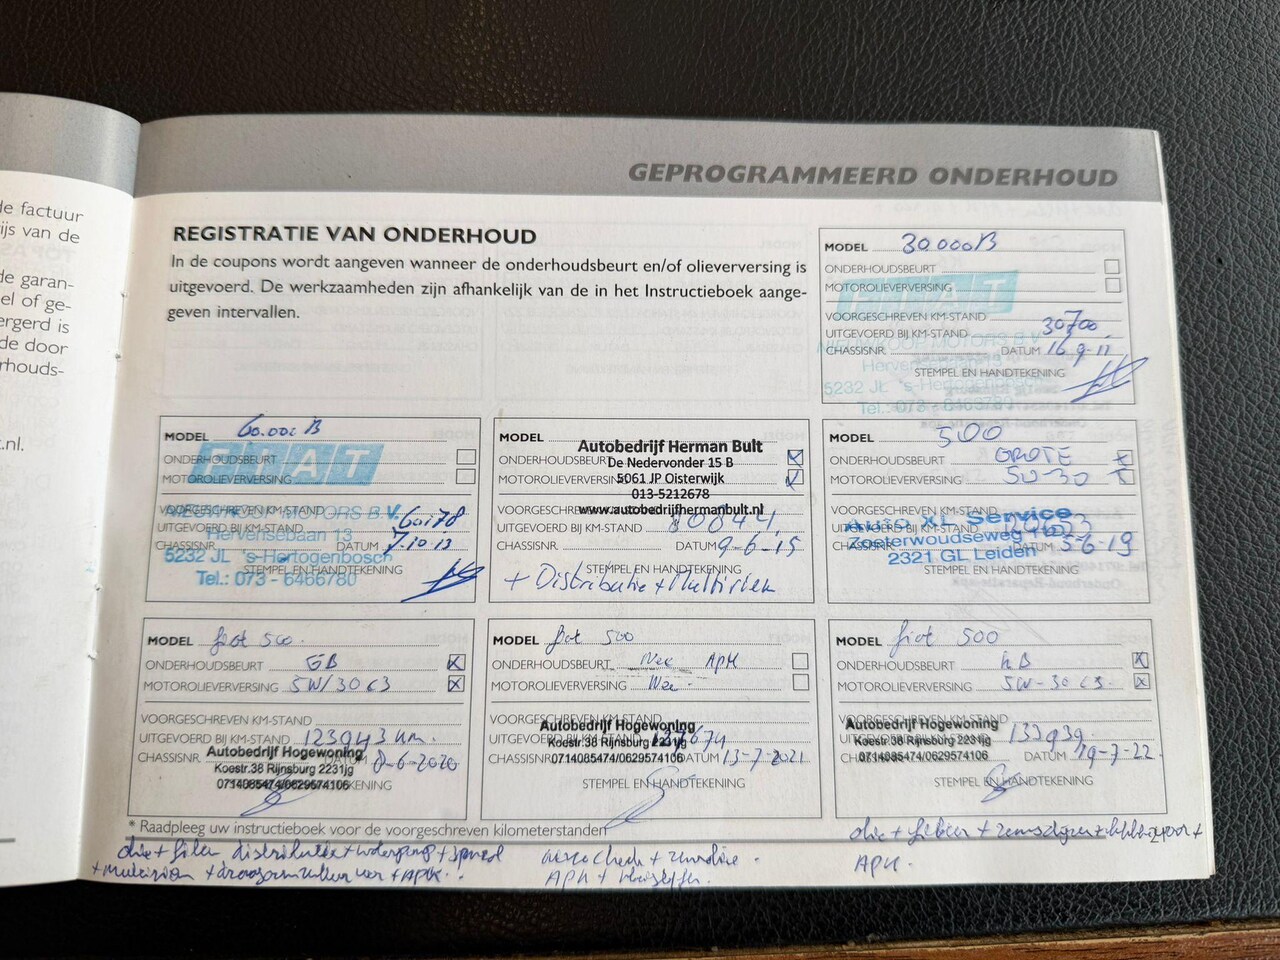 de factuur
ijs van de
de garan-
el of ge-
ergerd is
de door
rhouds-
t.nl.
GEPROGRAMMEERD ONDERHOUD
REGISTRATIE VAN ONDERHOUD
In de coupons wordt aangeven wanneer de onderhoudsbeurt en/of olieverversing is
uitgevoerd. De werkzaamheden zijn afhankelijk van de in het Instructieboek aange-
geven intervallen.
MODEL 30.000 B
ONDERHOUDSBEURT
MOTOROLIEVERVERSING
FIAT
VOORGESCHREVEN KM-STAND
UITGEVOERD BIJ KM-STAND 30700
MOTORS B.V.
CHASSISNR. DATUM 16-9-11
STEMPEL EN HANDTEKENING
5232 JL 's-Hertogenbosch
Tel.: 073 - 6466780
MODEL 60.000 B
ONDERHOUDSBEURT
FIAT
MOTOROLIEVERVERSING
VOORGESCHREVEN KM-STAND
MOTORS B.V.
UITGEVOERD BIJ KM-STAND 60178
Hervensebaan 13
CHASSISNR. DATUM 7-10-13
5232 JL 's-Hertogenbosch
STEMPEL EN HANDTEKENING
Tel.: 073 - 6466780
MODEL
Autobedrijf Herman Bult
ONDERHOUDSBEURT
De Nedervonder 15 B
MOTOROLIEVERVERSING
5061 JP Oisterwijk
013-5212678
VOORGESCHREVEN KM-STAND
www.autobedrijfhermanbult.nl
UITGEVOERD BIJ KM-STAND 80844
CHASSISNR. DATUM 9-6-15
STEMPEL EN HANDTEKENING
+ Distributie + Multiriem
MODEL 500
ONDERHOUDSBEURT GROTE
MOTOROLIEVERVERSING 5W-30
VOORGESCHREVEN KM-STAND
Auto XL Service
UITGEVOERD BIJ KM-STAND
Zoeterwoudseweg
CHASSISNR. DATUM 5-6-19
2321 GL Leiden
STEMPEL EN HANDTEKENING
MODEL fiat 500
ONDERHOUDSBEURT GB
MOTOROLIEVERVERSING 5W/30 C3
VOORGESCHREVEN KM-STAND
UITGEVOERD BIJ KM-STAND 123943 km.
Autobedrijf Hogewoning
CHASSISNR. DATUM 8-6-2020
Koestr.38 Rijnsburg 2231jg
0714085474/0629574106
STEMPEL EN HANDTEKENING
MODEL fiat 500
ONDERHOUDSBEURT Nee APK
MOTOROLIEVERVERSING Nee
VOORGESCHREVEN KM-STAND
Autobedrijf Hogewoning
UITGEVOERD BIJ KM-STAND 127674
Koestr.38 Rijnsburg 2231jg
CHASSISNR. DATUM 13-7-2021
0714085474/0629574106
STEMPEL EN HANDTEKENING
MODEL fiat 500
ONDERHOUDSBEURT KB
MOTOROLIEVERVERSING 5W-30 C3
VOORGESCHREVEN KM-STAND
Autobedrijf Hogewoning
UITGEVOERD BIJ KM-STAND 133939
Koestr.38 Rijnsburg 2231jg
CHASSISNR. DATUM 19-7-22
0714085474/0629574106
STEMPEL EN HANDTEKENING
* Raadpleeg uw instructieboek voor de voorgeschreven kilometerstanden
olie + filter distributie + waterpomp +
+ multiriem + draagarm + APK.
APK +
olie + filter + +
APK.